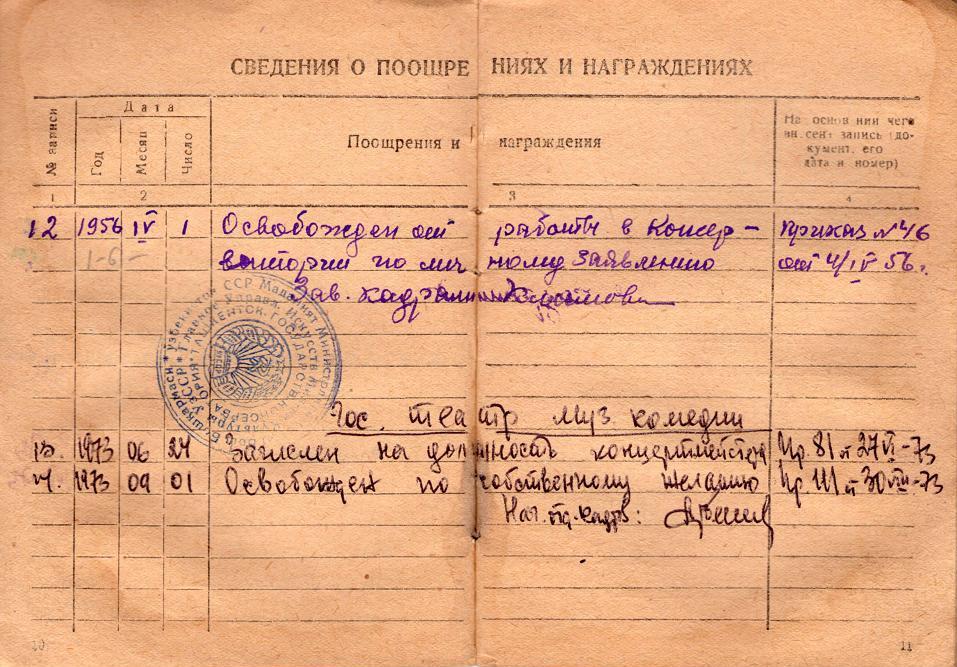 СВЕДЕНИЯ О ПООЩРЕНИЯХ И НАГРАЖДЕНИЯХ
№ записи
Дата
Год
Месяц
Число
Поощрения и награждения
На основ нии чего
вн сент запись (до-
кумент, его
дата и номер)
1 2 3 4
12 1956 IV 1 Освобожден от работы в Консер- приказ №46
ватории по личному заявлению от 4/IV 56 г.
1-6-
Зав. кадрами
Гос. театр муз. комедии
13. 1973 06 27 Зачислен на должность концертмейстера Пр. 81 от 27 VI-73
14. 1973 09 01 Освобожден по собственному желанию Пр. 111 от 30 VIII-73
Нач. отд. кадров:
10 11